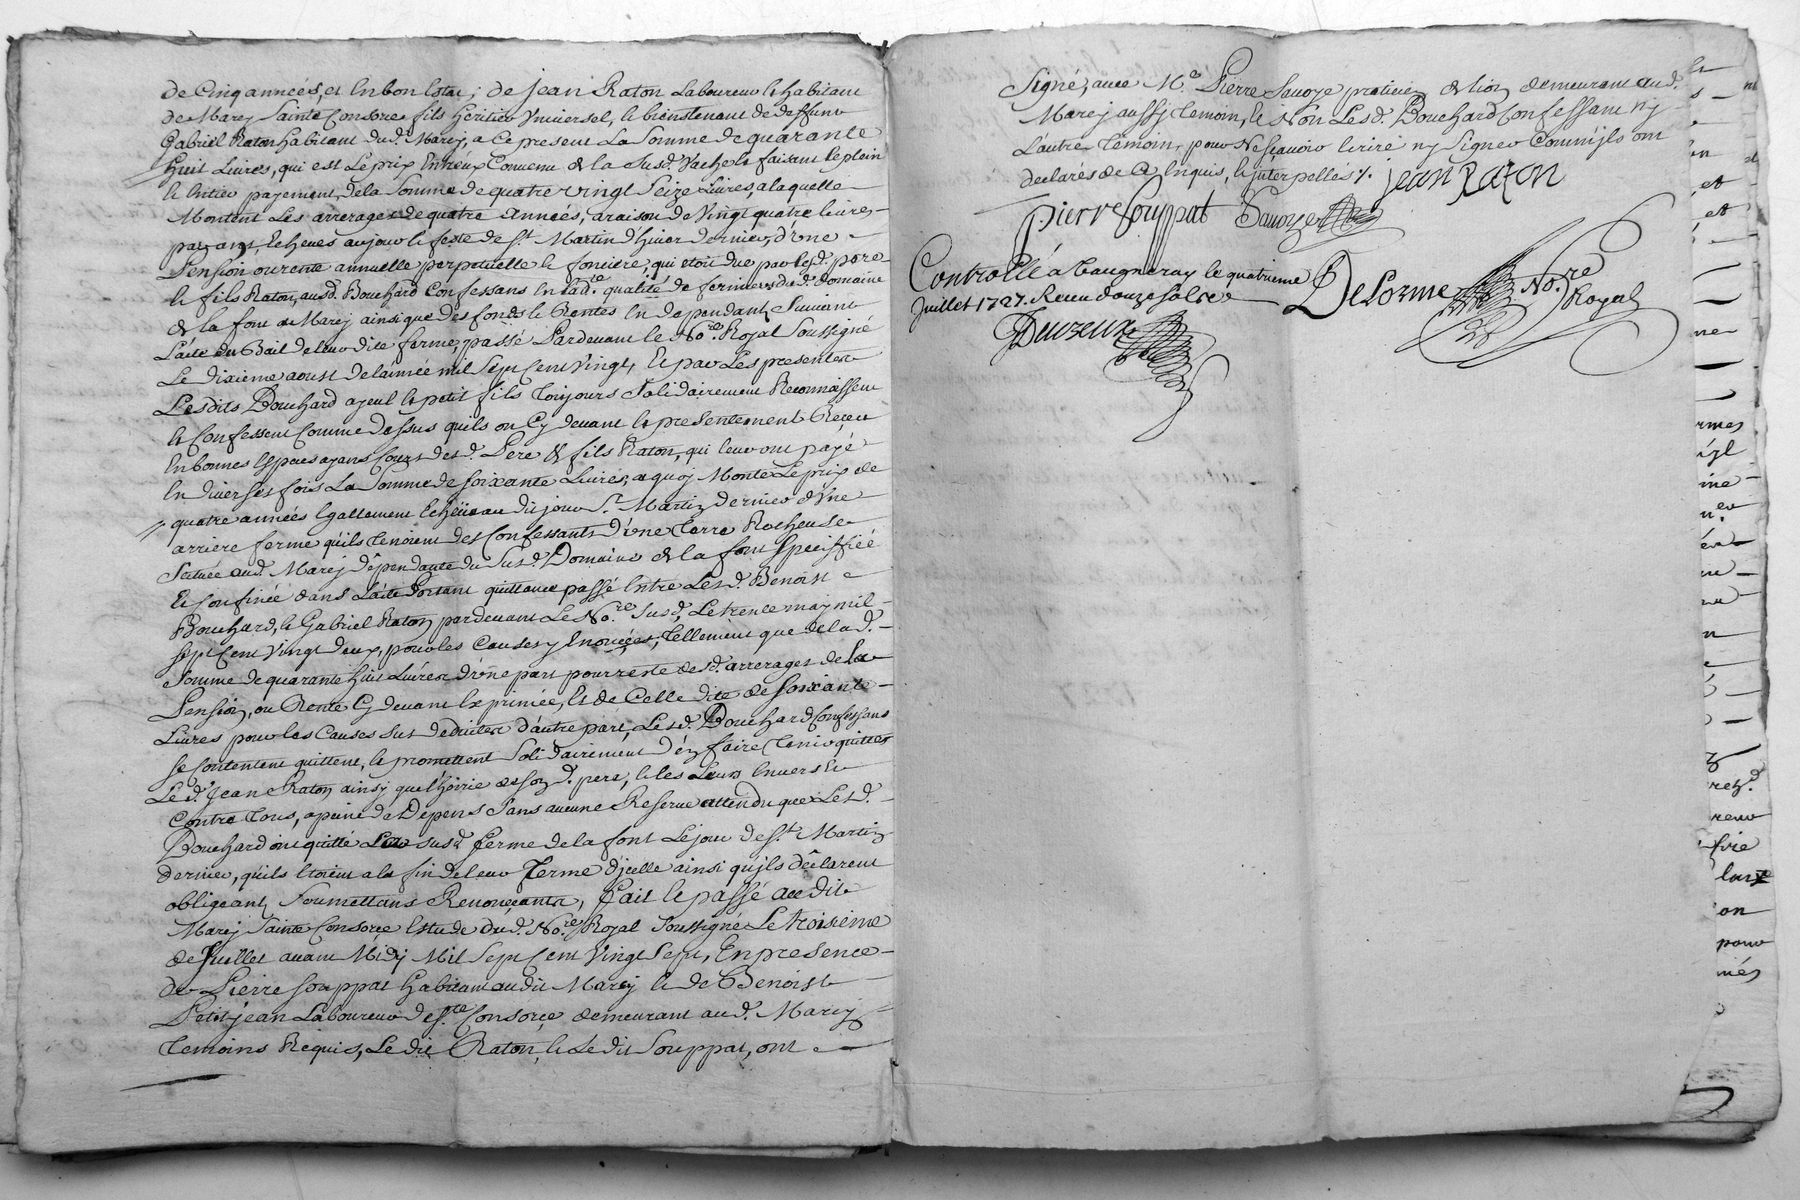 de Cinq années, et En bon Estat; de jean Raton Laboureur & habitant
de Marcy Sainte Consorce fils heritier Universel, & bientenant de deffunt
Gabriel Raton habitant dud. Marcy, a ce present La Somme de quarante
huit Livres, qui est Le prix Entreux Convenu de la Susd. Vache & faisant le plein
& Entier payement, de la Somme de quatre vingt Seize Livres, a laquelle
Montent Les arrerages de quatre Années, a raison de Vingt quatre livres
par an, Echeues au jour & feste de St. Martin d'hiver dernier, d'une
Pension ou rente annuelle perpetuelle & fonciere, qui etoit due par lesd. pere
& fils Raton, ausd. Bouchard Confessans En lade. qualité de fermiers dud. domaine
de la font de Marcy ainsi que des fonds & Rentes En dependant Suivant
L'acte du Bail de leur dite ferme, passé Pardevant le Nore. Royal Soussigné
Le dixieme aoust de l'année mil Sept Cent Vingt, Et par Les presentes
Lesdits Bouchard ayeul & petit fils Toujours Solidairement Reconnaissent
& Confessent Comme dessus quils ont Cy devant & presentement Reçeu
En bonnes Especes ayans Cours desd. Pere & fils Raton, qui leur ont payé
En diverses fois La Somme de soixante Livres, a quoy Monte Le prix de
quatre années Egallement Echeües au dit jour St. Martin dernier d'Une
arriere ferme quils Tenoient des Confessants d'une Terre Rocheuse
Scituée aud. Marcy dépendante du Susd. Domaine de la font Speciffiée
Et Confinée dans L'acte Portant quittance passé Entre Lesd. Benoist
Bouchard, & Gabriel Raton pardevant Le Nore. Susd. Le trente may mil
sept Cent Vingt deux, pour les Causes y Enoncées, Tellement que de la d.
Somme de quarante huit Livres d'une part pour reste desd. arrerages de la
Pension, ou Rente Cy devant Exprimée, Et de Celle dite de soixante
Livres pour les Causes Sus deduites d'autre part, Lesd. Bouchard Confessans
se Contentent quittent, & promettent Solidairement d'en faire Tenir quittes
Le d. Jean Raton ainsy que l'hoirie de son d. pere, & les Leurs Envers Et
Contre Tous, a peine de Depens Sans aucune Reserve attendu que Lesd.
Bouchard ont quitté La susd. ferme de la font Le jour de St. Martin
dernier, quils Etoient a la fin de leur Terme d'jcelle ainsi qu'jls déclarent
obligeant Soumettans Renonçants, Fait & passé audit
Marcy Sainte Consorce Estude dud. Nore. Royal Soussigné Le troisieme
de Juillet avant Midy Mil Sept Cent Vingt Sept, En presence
de Pierre Souppat habitant audit Marcy & de Benoist
Petitjean Laboureur de Ste. Consorce demeurant aud. Marcy
Temoins Requis, Le dit Raton, & Le dit Souppat, ont
Signé, avec Me. Pierre Savoye praticien de Lion demeurant aud.
Marcy aussy Temoin, & Non Lesd. Bouchard Confessant ny
L'autre Temoin, pour Ne Sçavoir Ecrire ny Signer Comm'jls ont
declarés de Ce Enquis, & jnterpellés /.
jean Raton
pierre Souppat Savoye
Controllé a Vaugneray le quatrieme
Juillet 1727. Receu douze sols
Delorme Nore Royal
Deuzeux